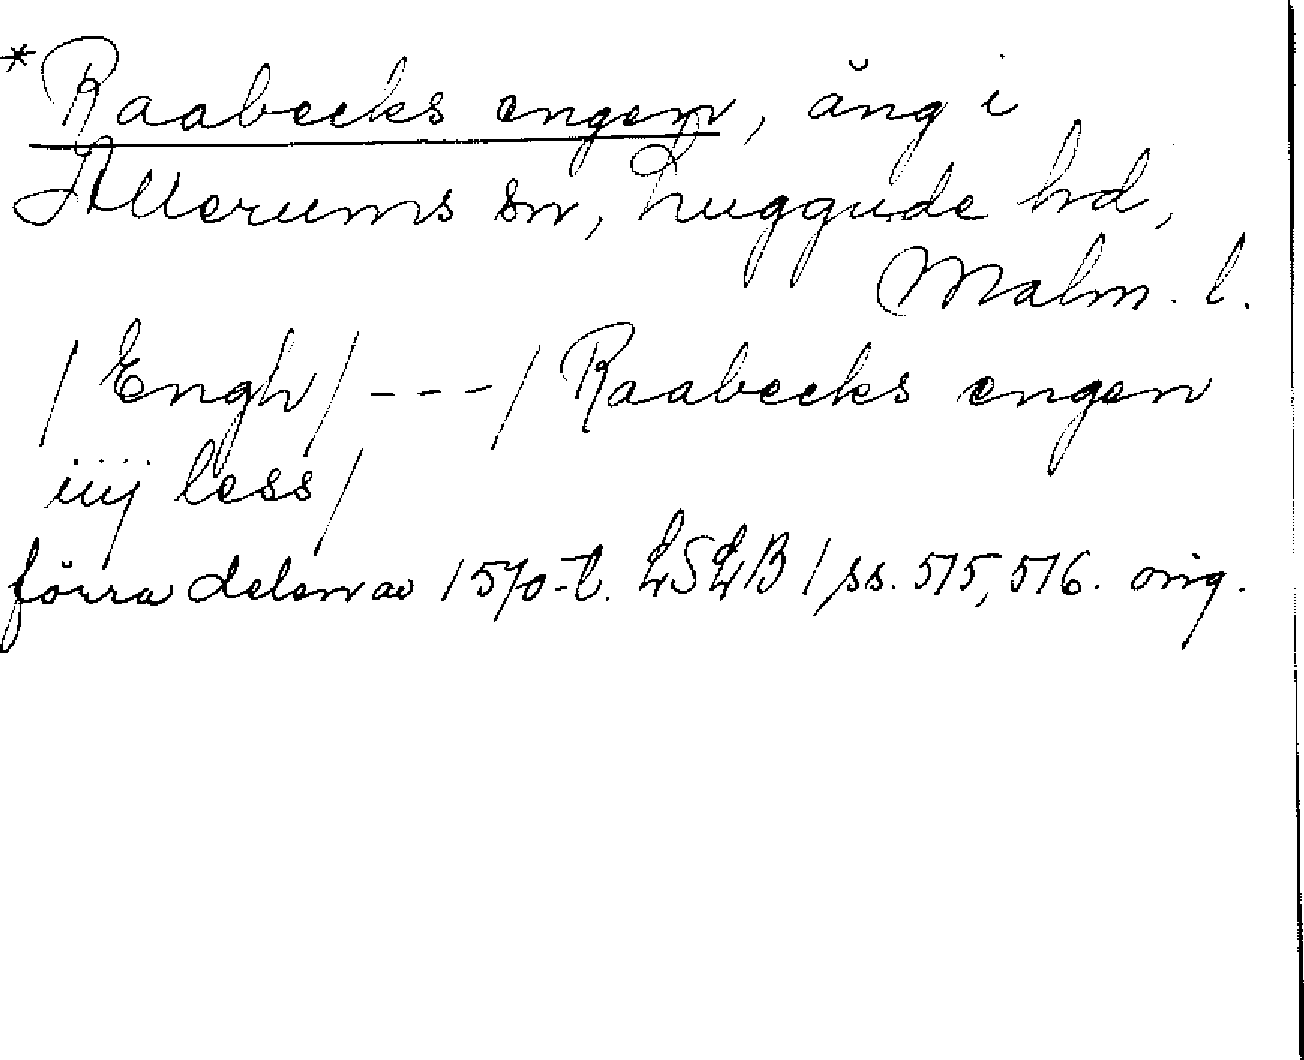 *Raabecks engen, äng i
Allerums sn, Luggude hd,
Malm. l.
/Engh/---/Raabecks engen
iiij less/
förra delen av 1570-t. LSLB 1 ss. 575, 576. orig.